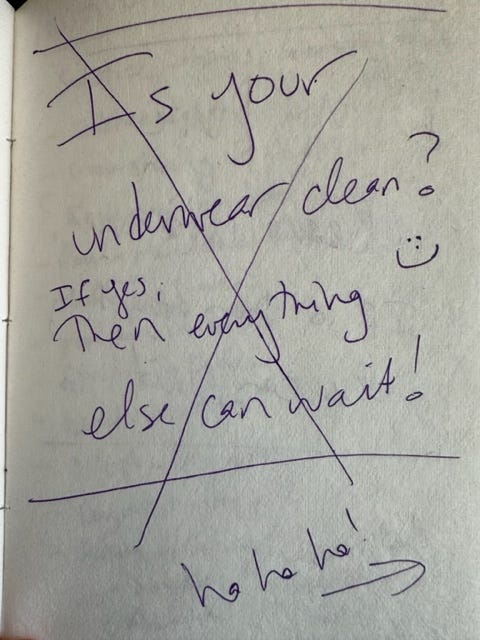 Is your
underwear clean?
If yes,
Then everything
else can wait!
ha ha ha!